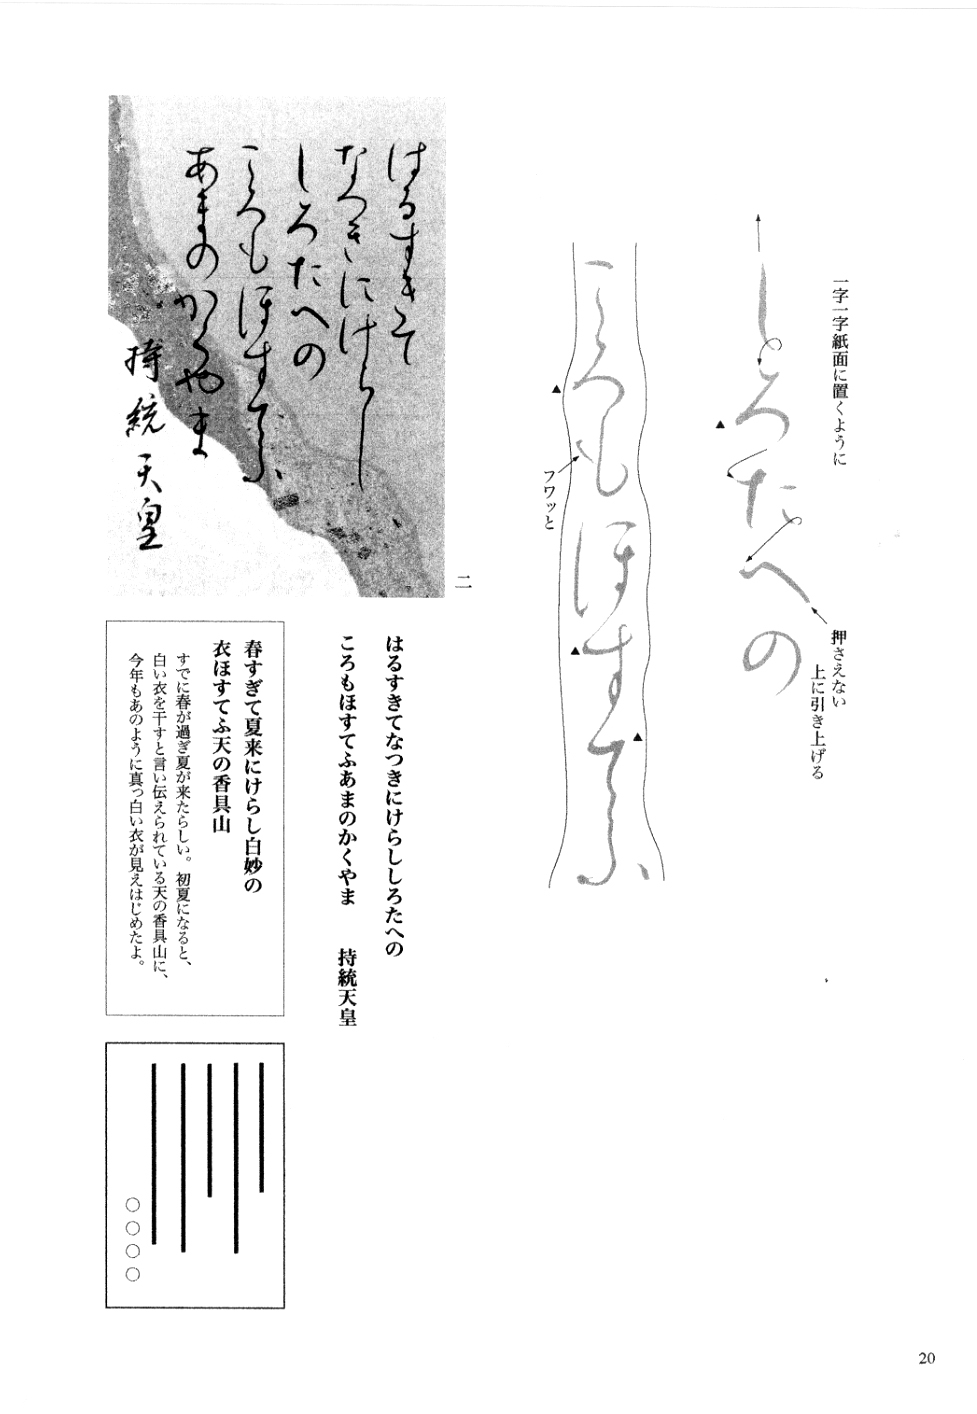 一字一字紙面に置くように
しろたへの
押さえない
上に引き上げる
ころもほすてふ
フワッと
二
はるすきて
なつきにけらし
しろたへの
ころもほすてふ
あまのかくやま
持統天皇
はるすきてなつきにけらししろたへの
ころもほすてふあまのかくやま 持統天皇
春すぎて夏来にけらし白妙の
衣ほすてふ天の香具山
すでに春が過ぎ夏が来たらしい。初夏になると、
白い衣を干すと言い伝えられている天の香具山に、
今年もあのように真っ白い衣が見えはじめたよ。
○○○○
20